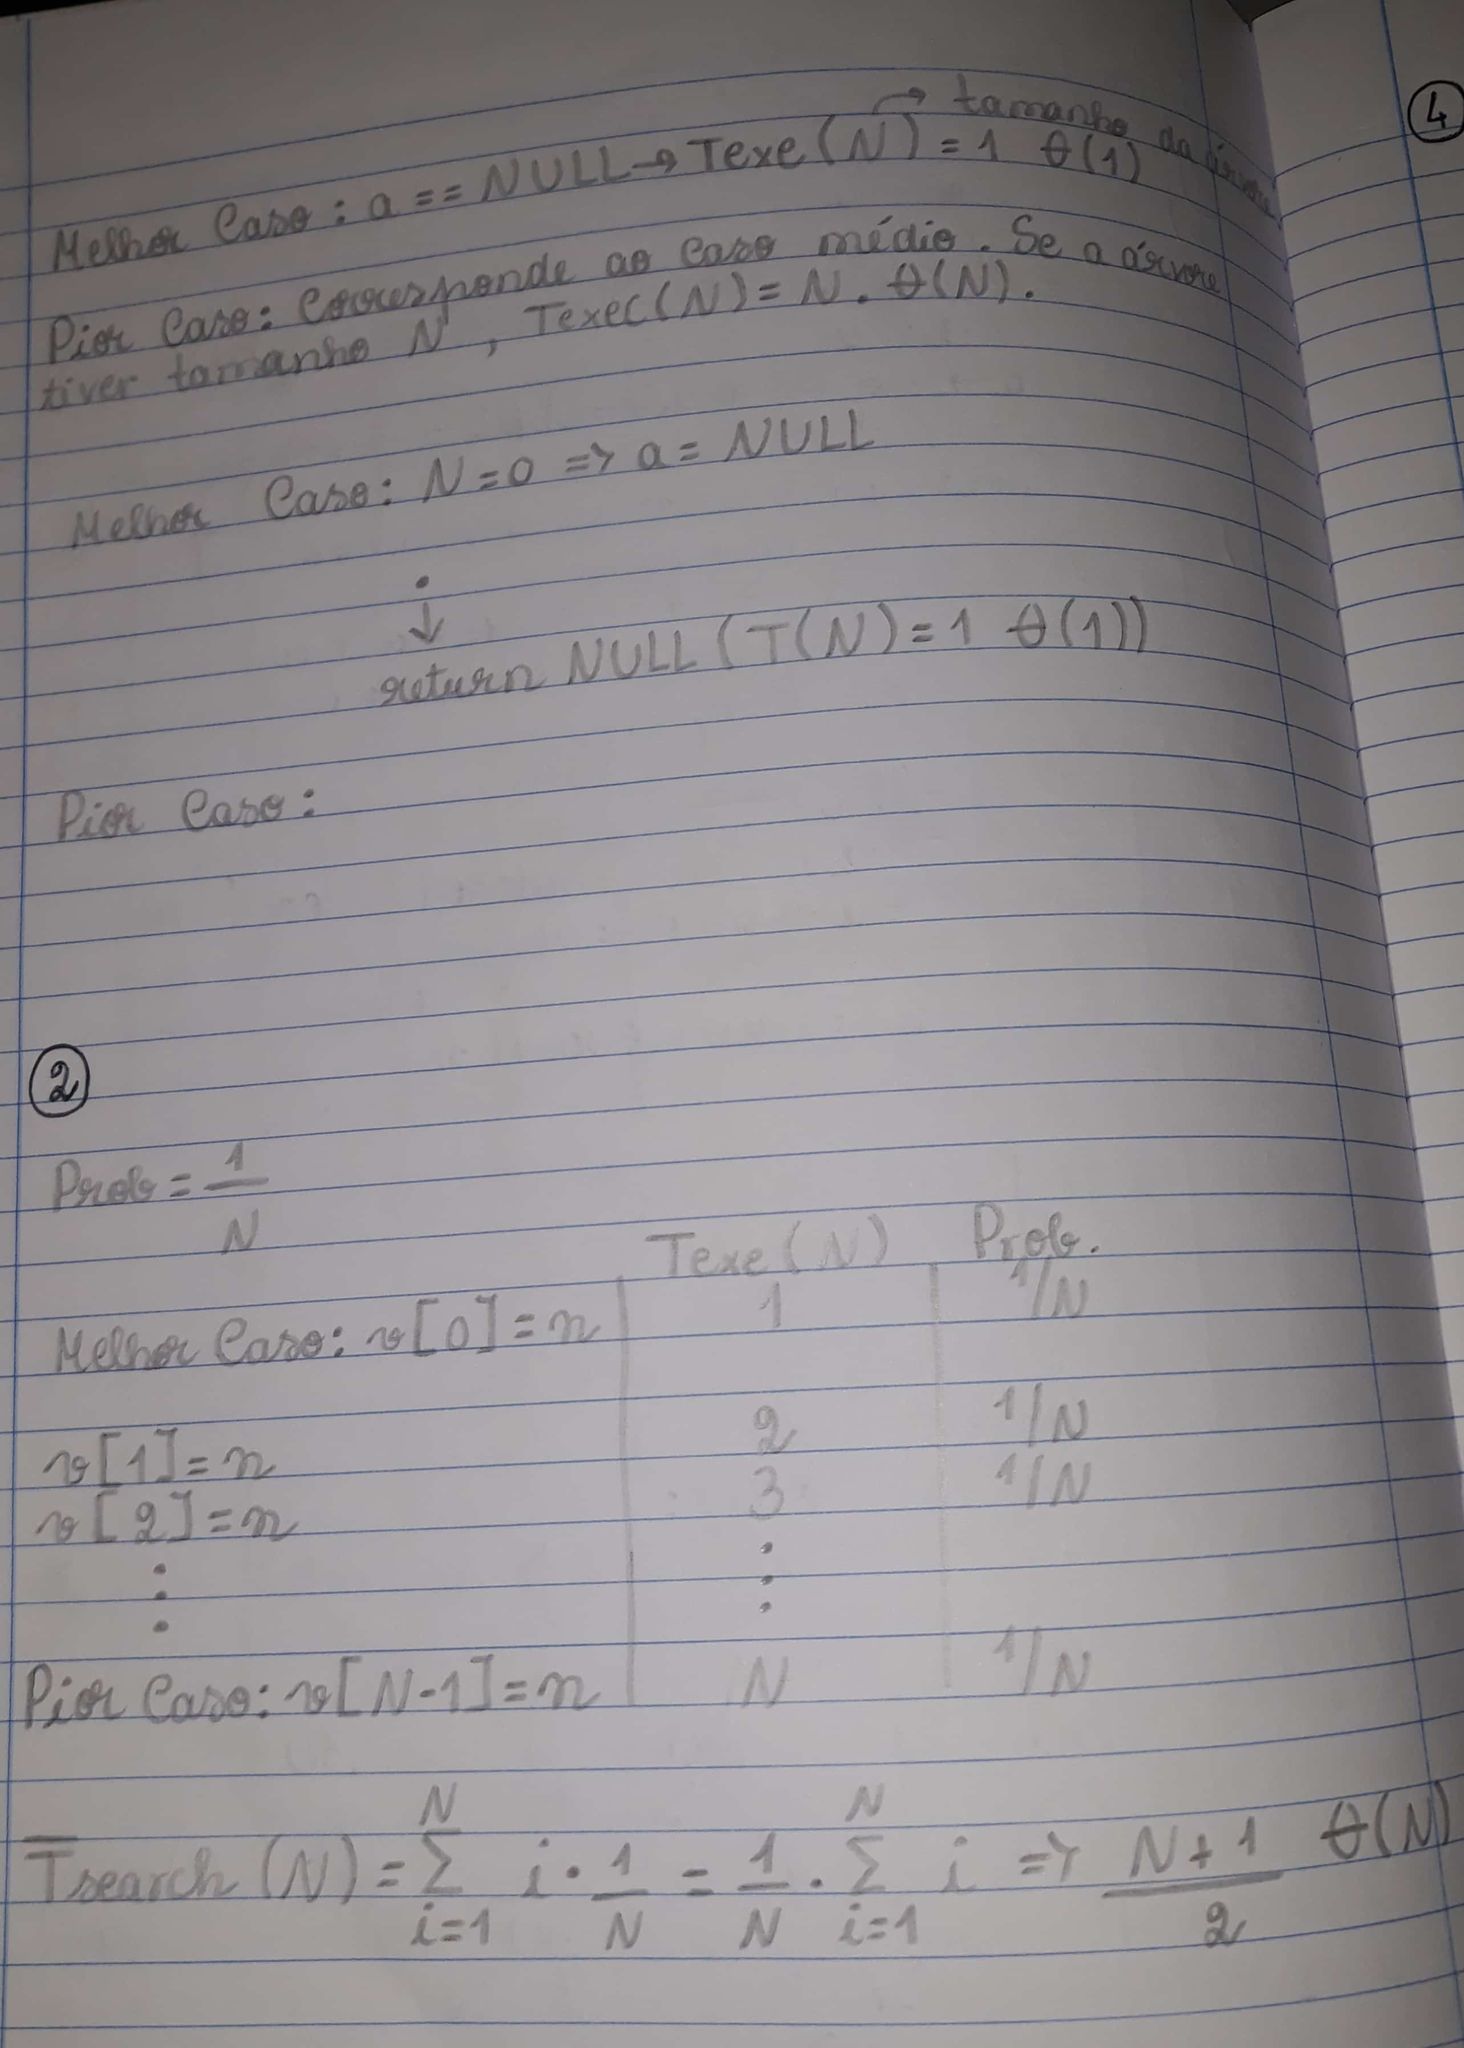 tamanho da árvore
Melhor Caso: a == NULL → Texe(N) = 1 θ(1)
Pior Caso: Corresponde ao caso médio. Se a árvore
tiver tamanho N, Texec(N) = N. θ(N).
Melhor Caso: N=0 => a = NULL
↓
return NULL (T(N)=1 θ(1))
Pior Caso:
4
2
Prob = 1/N
Texe(N) Prob.
Melhor Caso: v[0]=n 1 1/N
v[1]=n 2 1/N
v[2]=n 3 1/N
⋮ ⋮
Pior Caso: v[N-1]=n N 1/N
T̅search(N) = Σ_{i=1}^{N} i · 1/N = 1/N · Σ_{i=1}^{N} i => (N+1)/2 θ(N)